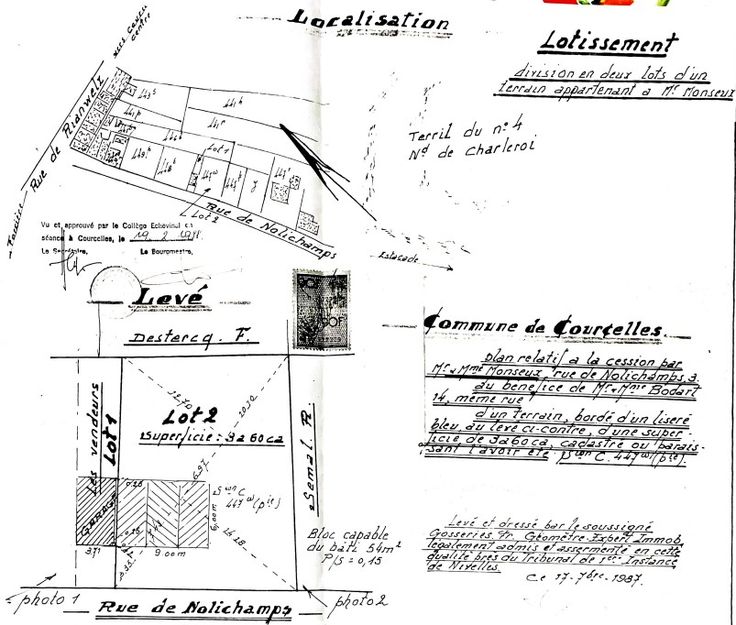 Localisation
Lotissement
division en deux lots d'un
terrain appartenant a Mr Monseux
Terril du n° 4
Nd de Charleroi
Rue de Rianwelz
Lot 1
Lot 2
Rue de Nolichamps
Estacade
Vu et approuvé par le Collège Echevinal en
séance à Courcelles, le 19.2.19
Le Secrétaire, Le Bourgmestre,
Levé
Destercq. F.
90F
50F
Commune de Courcelles
plan relatif a la cession par
Mr & Mme Monseux, rue de Nolichamps, 3
au benefice de Mr & Mme Bodart
14, même rue
d'un terrain, bordé d'un liseré
bleu, au levé ci-contre, d'une super
ficie de 3a60ca, cadastré ou parais-
sant l'avoir été Son C. 447w (pie)
Les vendeurs
Lot 1
Lot 2
Superficie: 3a60ca
Semal. R.
Son C
447w (pie)
GARAGE
6.97
6,00m
3.71
9.00m
14.18
Bloc capable
du bâti 54m²
P/S = 0,15
Levé et dressé par le soussigné
Gosseries. Fr. Géomètre-Expert Immob.
légalement admis et assermenté en cette
qualité près du Tribunal de 1ère Instance
de Nivelles.
Ce 17-7bre-1987
photo 1
Rue de Nolichamps
photo 2